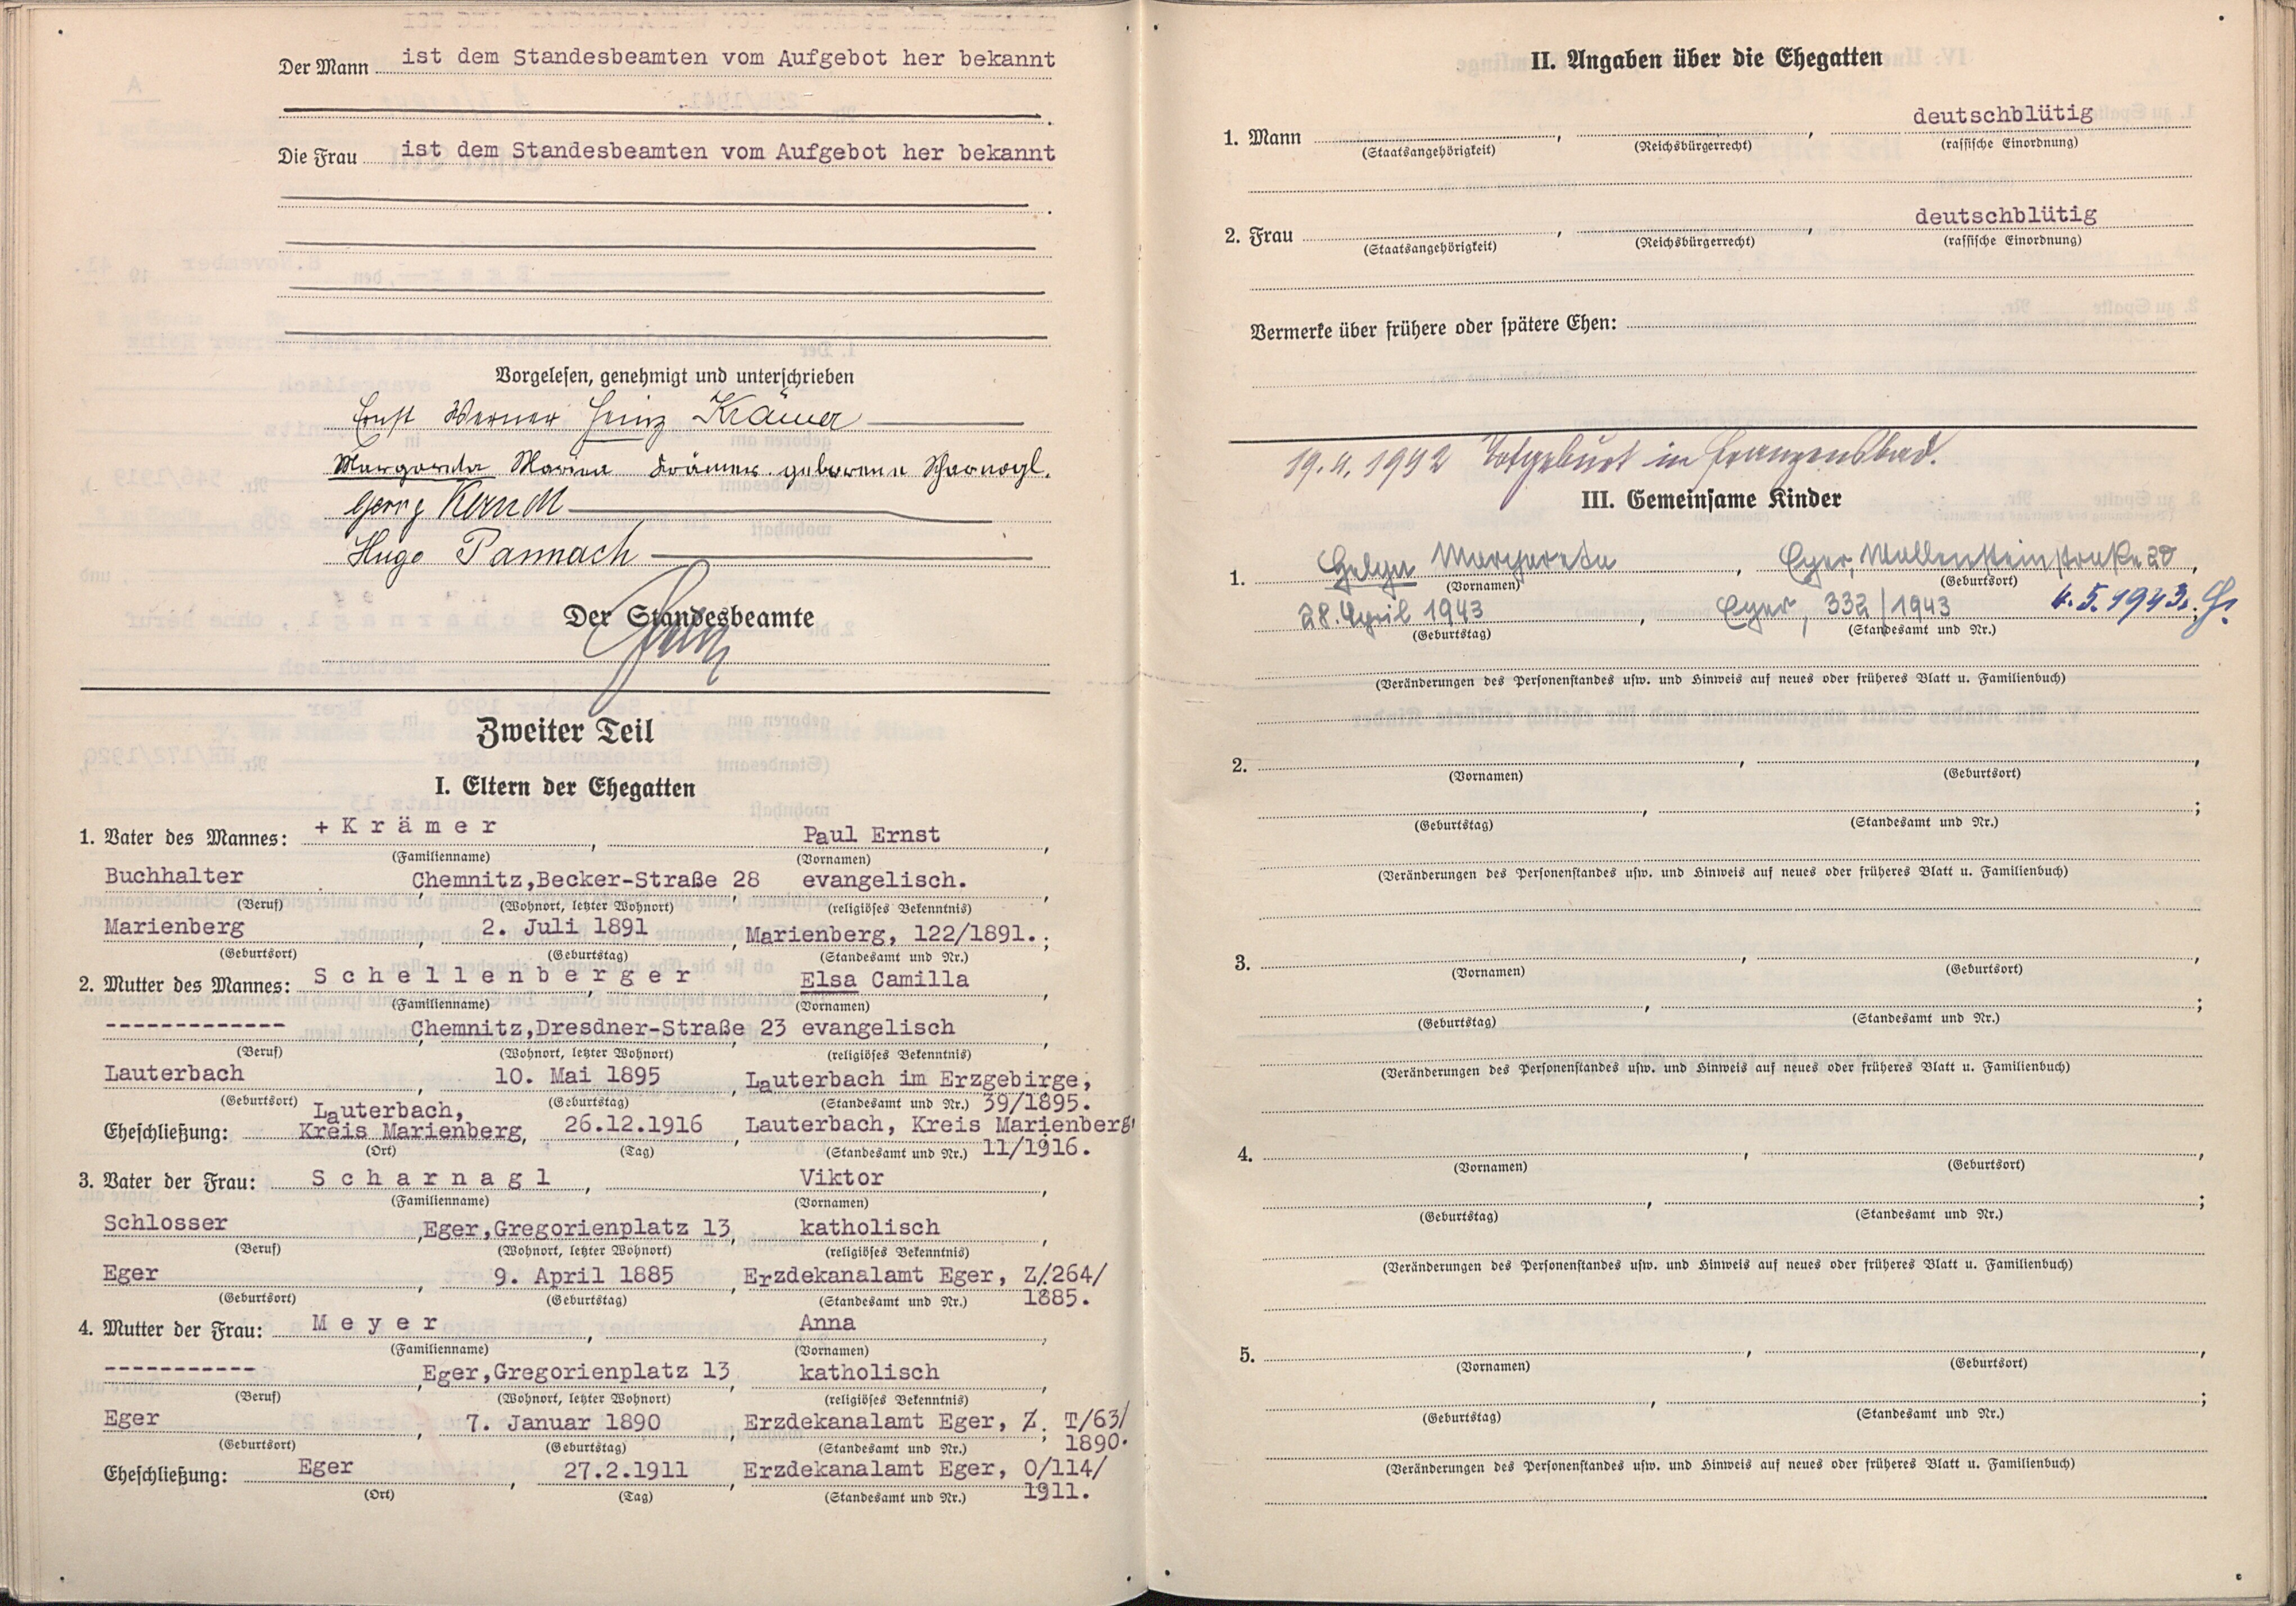 Der Mann ist dem Standesbeamten vom Aufgebot her bekannt
Die Frau ist dem Standesbeamten vom Aufgebot her bekannt
Vorgelesen, genehmigt und unterschrieben
Ernst Werner Heinz Krämer
Margareta Maria Krämer geborene Scharnagl.
Georg Kerndt
Hugo Pannach
Der Standesbeamte
Zweiter Teil
I. Eltern der Ehegatten
1. Vater des Mannes: + K r ä m e r , Paul Ernst ,
(Familienname) (Vornamen)
Buchhalter , Chemnitz,Becker-Straße 28 , evangelisch. ,
(Beruf) (Wohnort, letzter Wohnort) (religiöses Bekenntnis)
Marienberg , 2. Juli 1891 , Marienberg, 122/1891. ;
(Geburtsort) (Geburtstag) (Standesamt und Nr.)
2. Mutter des Mannes: S c h e l l e n b e r g e r , Elsa Camilla ,
(Familienname) (Vornamen)
------------- , Chemnitz,Dresdner-Straße 23 , evangelisch ,
(Beruf) (Wohnort, letzter Wohnort) (religiöses Bekenntnis)
Lauterbach , 10. Mai 1895 , Lauterbach im Erzgebirge,
(Geburtsort) (Geburtstag) (Standesamt und Nr.) 39/1895.
Lauterbach,
Eheschließung: Kreis Marienberg, 26.12.1916 , Lauterbach, Kreis Marienberg,
(Ort) (Tag) (Standesamt und Nr.) 11/1916.
3. Vater der Frau: S c h a r n a g l , Viktor ,
(Familienname) (Vornamen)
Schlosser , Eger,Gregorienplatz 13 , katholisch ,
(Beruf) (Wohnort, letzter Wohnort) (religiöses Bekenntnis)
Eger , 9. April 1885 , Erzdekanalamt Eger, Z/264/
(Geburtsort) (Geburtstag) (Standesamt und Nr.) 1885.
4. Mutter der Frau: M e y e r , Anna ,
(Familienname) (Vornamen)
----------- , Eger,Gregorienplatz 13 , katholisch ,
(Beruf) (Wohnort, letzter Wohnort) (religiöses Bekenntnis)
Eger , 7. Januar 1890 , Erzdekanalamt Eger, Z. T/63/
(Geburtsort) (Geburtstag) (Standesamt und Nr.) 1890.
Eheschließung: Eger , 27.2.1911 , Erzdekanalamt Eger, O/114/
(Ort) (Tag) (Standesamt und Nr.) 1911.
II. Angaben über die Ehegatten
1. Mann , , deutschblütig
(Staatsangehörigkeit) (Reichsbürgerrecht) (rassische Einordnung)
2. Frau , , deutschblütig
(Staatsangehörigkeit) (Reichsbürgerrecht) (rassische Einordnung)
Vermerke über frühere oder spätere Ehen:
Totgeburt in Franzensbad.
III. Gemeinsame Kinder
1. Helga Margareta , Eger, Wallensteinstraße 20 ,
(Vornamen) (Geburtsort)
28. April 1943 , Eger, 332/1943 4.5.1943.
(Geburtstag) (Standesamt und Nr.)
(Veränderungen des Personenstandes usw. und Hinweis auf neues oder früheres Blatt u. Familienbuch)
2. , ,
(Vornamen) (Geburtsort)
, ;
(Geburtstag) (Standesamt und Nr.)
(Veränderungen des Personenstandes usw. und Hinweis auf neues oder früheres Blatt u. Familienbuch)
3. , ,
(Vornamen) (Geburtsort)
, ;
(Geburtstag) (Standesamt und Nr.)
(Veränderungen des Personenstandes usw. und Hinweis auf neues oder früheres Blatt u. Familienbuch)
4. , ,
(Vornamen) (Geburtsort)
, ;
(Geburtstag) (Standesamt und Nr.)
(Veränderungen des Personenstandes usw. und Hinweis auf neues oder früheres Blatt u. Familienbuch)
5. , ,
(Vornamen) (Geburtsort)
, ;
(Geburtstag) (Standesamt und Nr.)
(Veränderungen des Personenstandes usw. und Hinweis auf neues oder früheres Blatt u. Familienbuch)